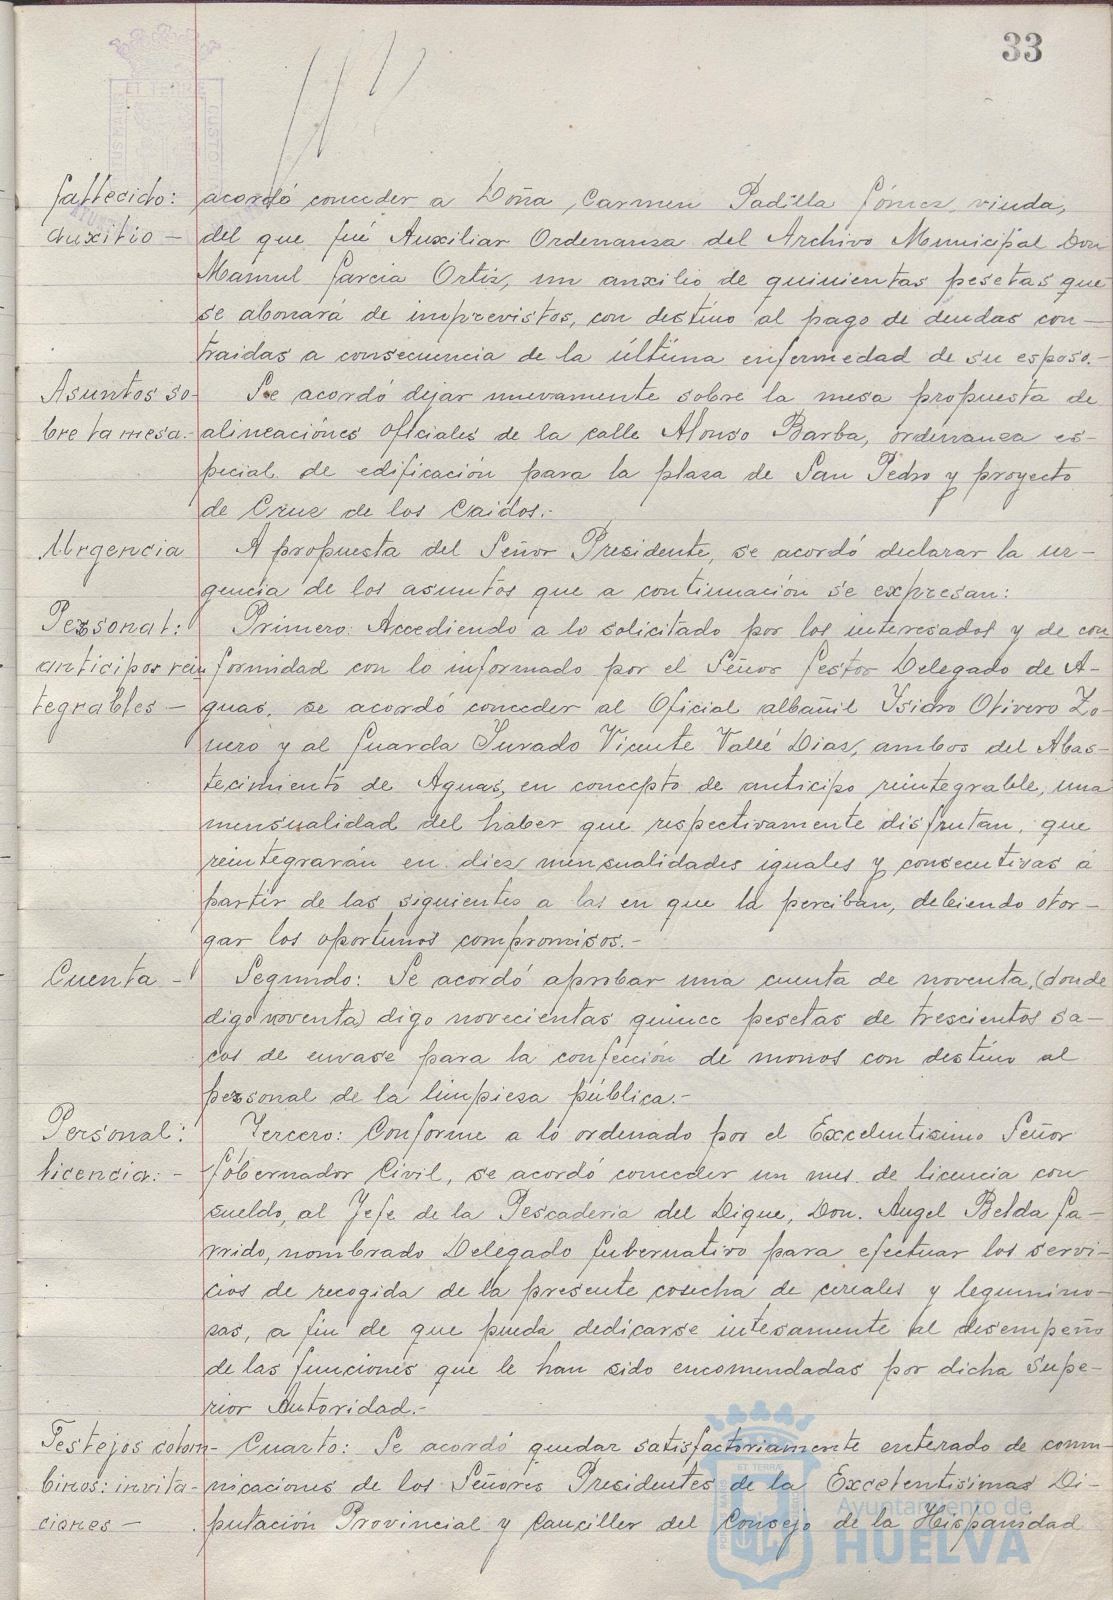 33
fallecido: acordó conceder a Doña Carmen Padilla Gómez, viuda,
auxilio — del que fué Auxiliar Ordenanza del Archivo Municipal Don
Manuel Garcia Ortiz, un auxilio de quinientas pesetas que
se abonará de imprevistos, con destino al pago de deudas con-
traidas a consecuencia de la última enfermedad de su esposo.-
Asuntos so- Se acordó dejar nuevamente sobre la mesa propuesta de
bre la mesa.- alineaciónes oficiales de la calle Alonso Barba, ordenanza es-
pecial de edificación para la plaza de San Pedro y proyecto
de Cruz de los Caidos.-
Urgencia A propuesta del Señor Presidente, se acordó declarar la ur-
gencia de los asuntos que a continuación se expresan:
Personal: Primero: Accediendo a lo solicitado por los interesados y de con
anticipos rein formidad con lo informado por el Señor Gestor Delegado de A-
tegrables — guas, se acordó conceder al Oficial albañil Isidro Olivero Zo-
nero y al Guarda Jurado Vicente Vallé Diaz, ambos del Abas-
tecimiento de Aguas, en concepto de anticipo reintegrable, una
mensualidad del haber que respectivamente disfrutan, que
reintegrarán en diez mensualidades iguales y consecutivas á
partir de las siguientes a las en que la perciban, debiendo otor-
gar los oportunos compromisos.-
Cuenta - Segundo: Se acordó aprobar una cuenta de noventa, (donde
digo noventa) digo novecientas quince pesetas de trescientos sa-
cos de envase para la confección de monos con destino al
personal de la limpieza pública.-
Personal: Tercero: Conforme a lo ordenado por el Excelentisimo Señor
licencia: - Góbernador Civil, se acordó conceder un mes de licencia con
sueldo, al Jefe de la Pescaderia del Dique, Don Angel Belda Ga-
rrido, nombrado Delegado Gubernativo para efectuar los servi-
cios de recogida de la presente cosecha de cereales y legumino-
sas, a fin de que pueda dedicarse intesamente al desempeño
de las funciones que le han sido encomendadas por dicha Supe-
rior Autoridad.-
Festejos colom- Cuarto: Se acordó quedar satisfactoriamente enterado de comu-
binos: invita- nicaciones de los Señores Presidentes de la Excelentisimas Di-
ciones — putación Provincial y Canciller del Consejo de la Hispanidad
Ayuntamiento de
HUELVA